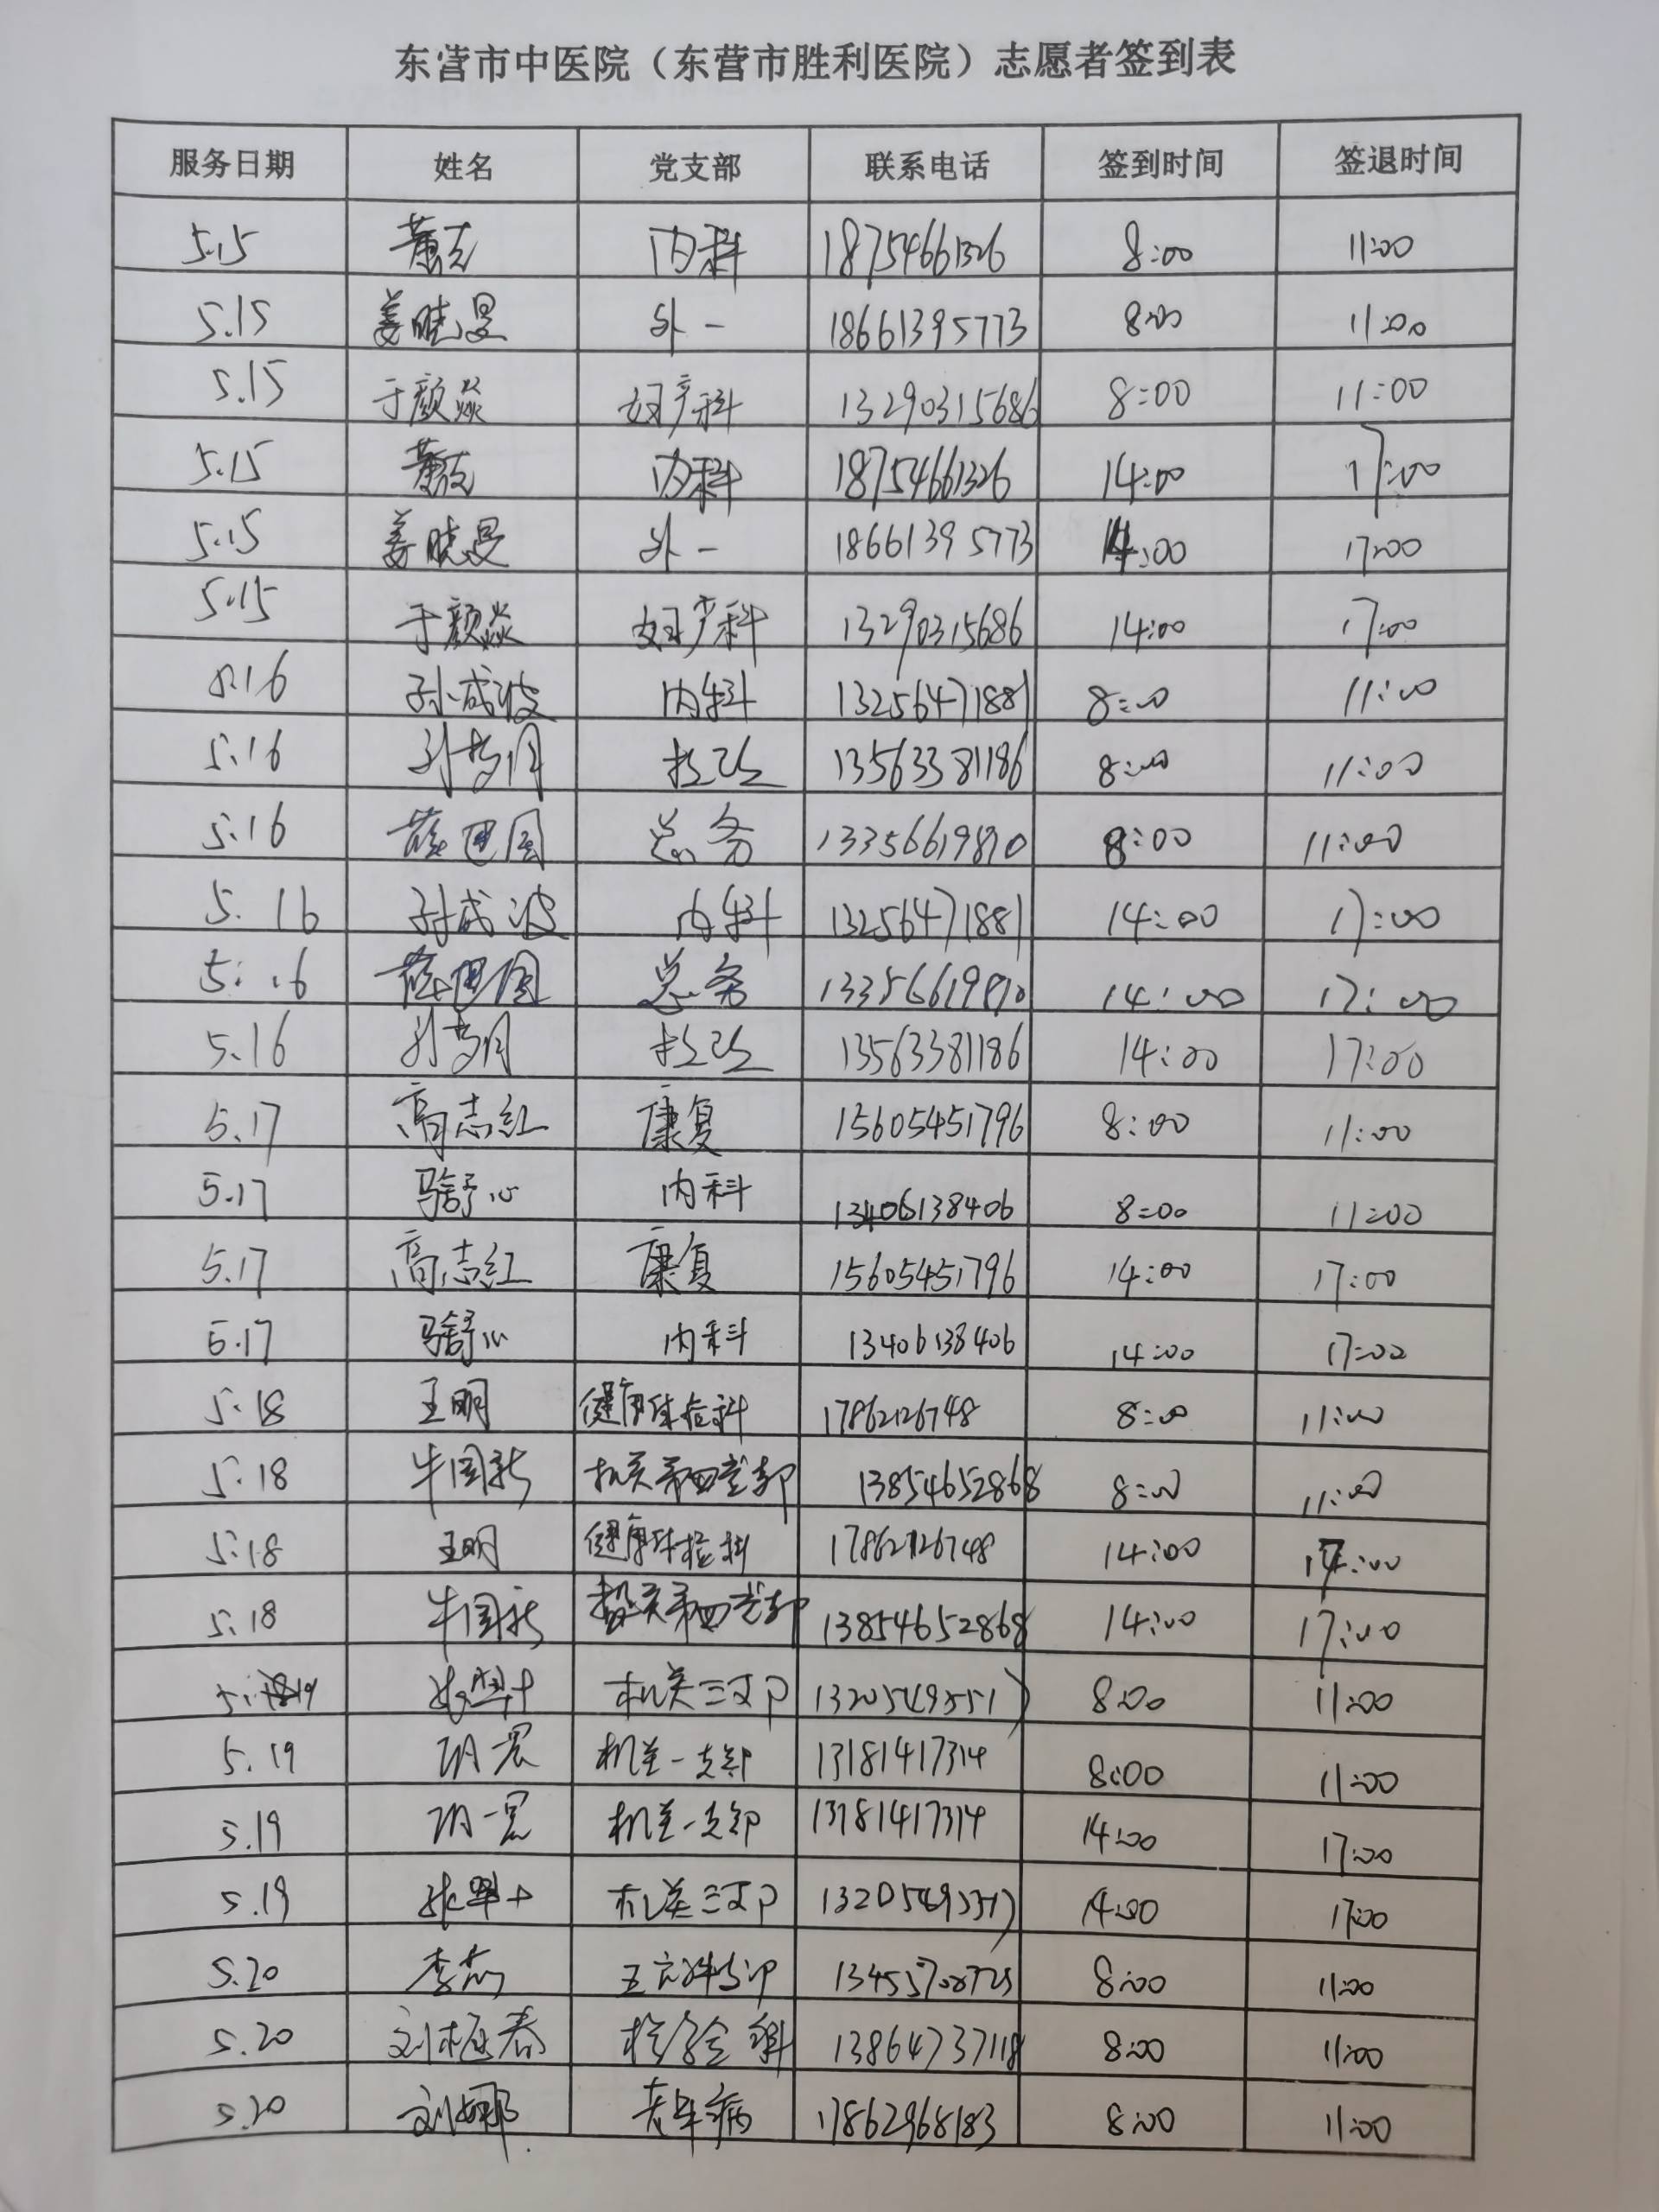 东营市中医院（东营市胜利医院）志愿者签到表
服务日期 姓名 党支部 联系电话 签到时间 签退时间
5.15 内科 18754661326 8:00 11:00
5.15 姜晓曼 外一 18661395773 8:00 11:00
5.15 于颜焱 妇产科 13290315686 8:00 11:00
5.15 内科 18754661326 14:00 17:00
5.15 姜晓曼 外一 18661395773 14:00 17:00
5.15 于颜焱 妇产科 13290315686 14:00 17:00
5.16 孙成波 内科 13256471881 8:00 11:00
5.16 孙梦月 13563381186 8:00 11:00
5.16 总务 13356619810 8:00 11:00
5.16 孙成波 内科 13256471881 14:00 17:00
5.16 总务 13356619810 14:00 17:00
5.16 孙梦月 13563381186 14:00 17:00
5.17 高志红 康复 15605451796 8:00 11:00
5.17 马舒心 内科 13406138406 8:00 11:00
5.17 高志红 康复 15605451796 14:00 17:00
5.17 马舒心 内科 13406138406 14:00 17:00
5.18 王明 健康体检科 17862126748 8:00 11:00
5.18 牛国新 机关第四党支部 13854652868 8:00 11:00
5.18 王明 健康体检科 17862126748 14:00 17:00
5.18 牛国新 机关第四党支部 13854652868 14:00 17:00
5.19 机关三支部 13205495517 8:00 11:00
5.19 机关一支部 13181417314 8:00 11:00
5.19 机关一支部 13181417314 14:00 17:00
5.19 机关三支部 13205495517 14:00 17:00
5.20 李杰 8:00 11:00
5.20 刘梅春 检验科 13864737118 8:00 11:00
5.20 刘娜 老年病 17862968183 8:00 11:00